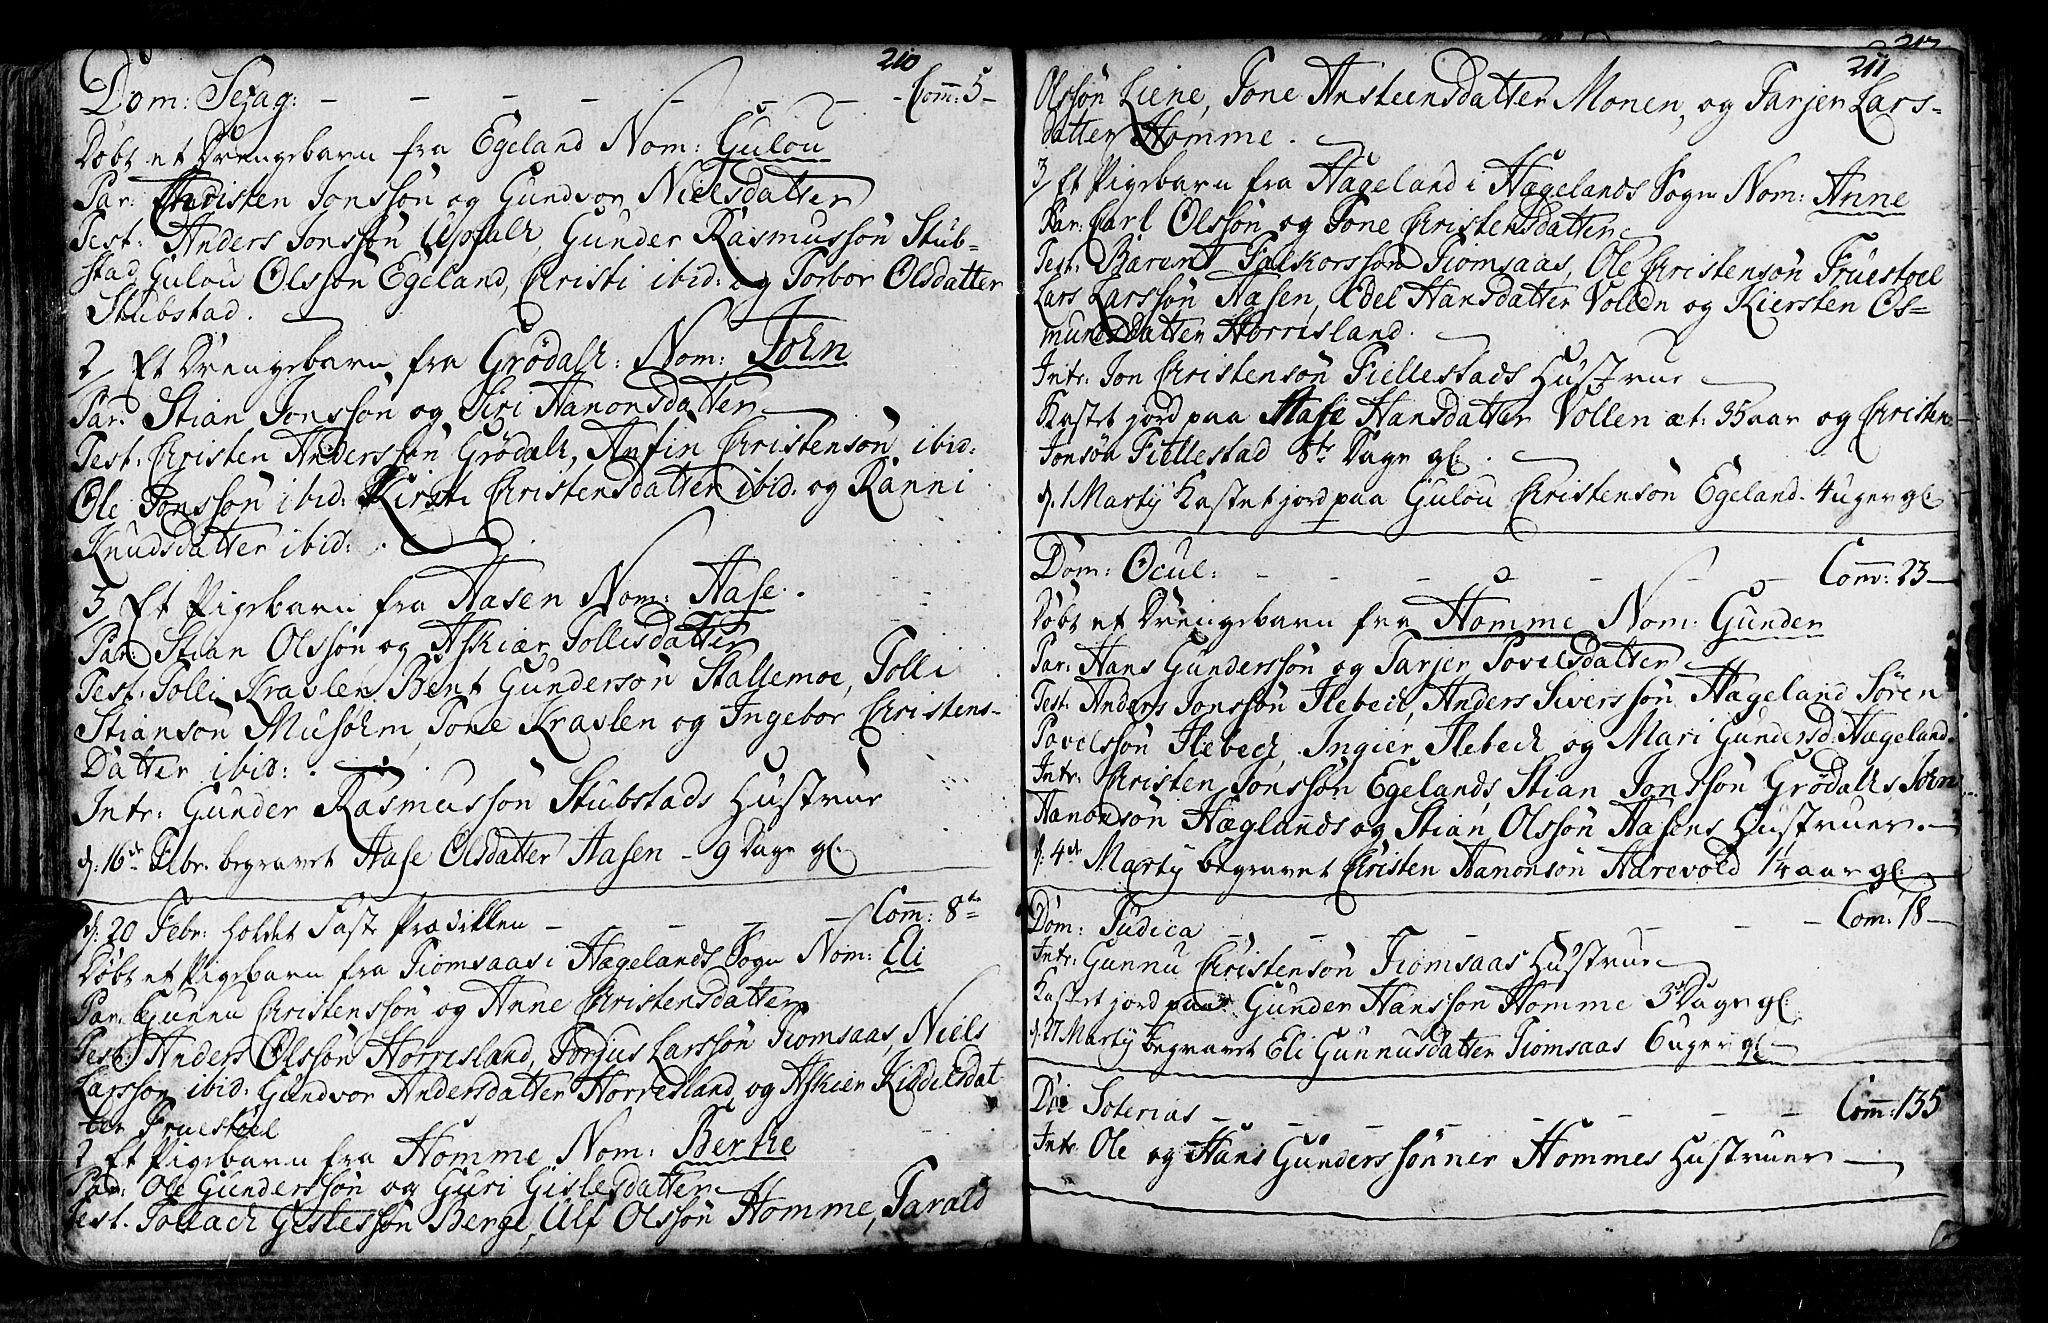 210
Dom: Sexag: - - - - - - - Com: 5 -
Døbt et Drengebarn fra Egeland Nom: Gulou
Par: Christen Jonssøn og Gundvor Nielsdatter
Test: Anders Jonssøn Upsahl, Gunder Rasmussøn Stub-
stad, Gulou Olssøn Egeland, Christi ibid: og Torbor Olsdatter
Stubstad.
2/ Et Drengebarn fra Grødalh: Nom: John
Par: Stian Jonssøn og Siri Hanonsdatter
Test: Christen Anderssøn Grødalh, Anfin Christensøn ibid:
Ole Jonssøn ibid: Kirsti Christensdatter ibid: og Ranni
Knudsdatter ibid:
3/ Et Pigebarn fra Aasen Nom: Aase.
Par: Stian Olssøn og Askier Tollisdatter
Test: Tolli Kraslen, Bent Gundersøn Stallemoe, Tolli
Stiansøn Musholm, Tone Kraslen og Ingebor Christens-
Datter ibid:
Intr: Gunder Rasmussøn Stubstads Hustrue
d: 16de Febr: begravet Aase Olsdatter Aasen - 9 Dage gl:
d: 20 Febr: holdet Faste Prædikken - - - - Com: 8te
Døbt et Pigebarn fra Tiomsaas i Hægelands Sogn Nom: Eli
Par: Gunnu Christenssøn og Anne Christensdatter
Test: Anders Olssøn Horrisland, Torjus Larssøn Tiomsaas, Niels
Larssøn ibid: Gundvor Andersdatter Horresland, og Askier Kiddelsdat
ter Fruestøel
2 Et Pigebarn fra Homme Nom: Berthe
Par: Ole Gunderssøn og Guri Gislesdatter
Test: Tollach Geslessøn Berge, Ulf Olssøn Homme, Tarald
211
Olssøn Liene, Tone Ansteensdatter Monen, og Tarjer Lars-
datter Homme.
3/ Et Pigebarn fra Hægeland i Hægelands Sogn Nom: Anne
Par: Carl Olssøn og Tone Christensdatter
Test: Barent Falkorssøn Tiomsaas, Ole Christensøn Fruestoel
Lars Larssøn Aasen, Edel Hansdatter Vollen og Kiersten Os-
mundsdatter Horrisland.
Intr: Jon Christensøn Fiellestads Hustrue
Kastet jord paa Aase Hansdatter Vollen æt: 35 aar og Christen
Jonsøn Fiellestad 8te Dage gl:
d. 1 Martij Kastet jord paa Gulou Christensøn Egeland. 4 uger gl:
Dom: Ocul: - - - - - - Com: 23 -
Døbt et Drengebarn fra Homme Nom: Gunder
Par: Hans Gunderssøn og Tarjer Povelsdatter
Test: Anders Jonssøn Ilebech, Anders Siverssøn Hægeland, Søren
Povelssøn Ilebech, Ingier Ilebech og Mari Gundersd: Hægeland
Intr: Christen Jonssøn Egelands, Stian Jonssøn Grødalhs, John
Hanonsøn Hæglands og Stian Olssøn Aasens Hustruer.
d: 4de Martij begravet Christen Hanonsøn Aarevold 14 aar gl:
Dom: Judica - - - - - - Com: 18 -
Intr: Gunnu Christensøn Tiomsaas Hustrue
Kastet jord paa Gunder Hanssøn Homme 3 Dage gl:
d: 27 Martij begravet Eli Gunnusdatter Tiomsaas 6 uger gl:
Die Soterias - - - - - - Com: 135
Intr Ole og Hans Gunderssønner Hommes Hustruer